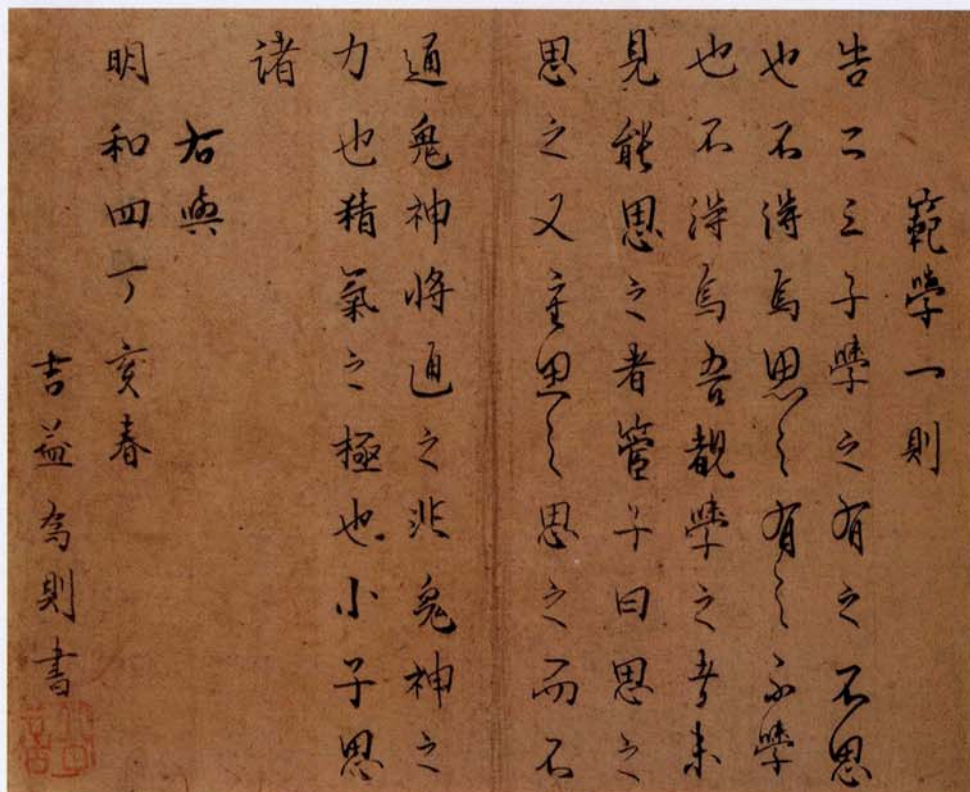 範學一則
告二三子學之有之不思
也不得焉思之有之不學
也不得焉吾覩學之者未
見能思之者管子曰思之
思之又重思之思之而不
通鬼神将通之非鬼神之
力也精氣之極也小子思
諸
右與
明和四丁亥春
吉益為則書